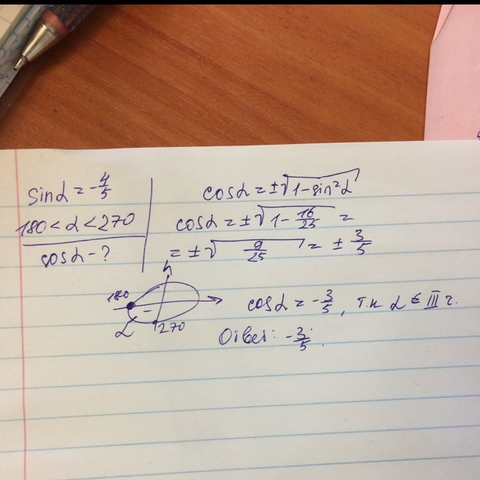 sinα = -4/5
180 < α < 270
cosα - ?
cosα = ±√(1-sin²α)
cosα = ±√(1 - 16/25) =
= ±√(9/25) = ± 3/5
180
270
α
cosα = -3/5, т.к α ∈ III ч.
Ответ: -3/5.